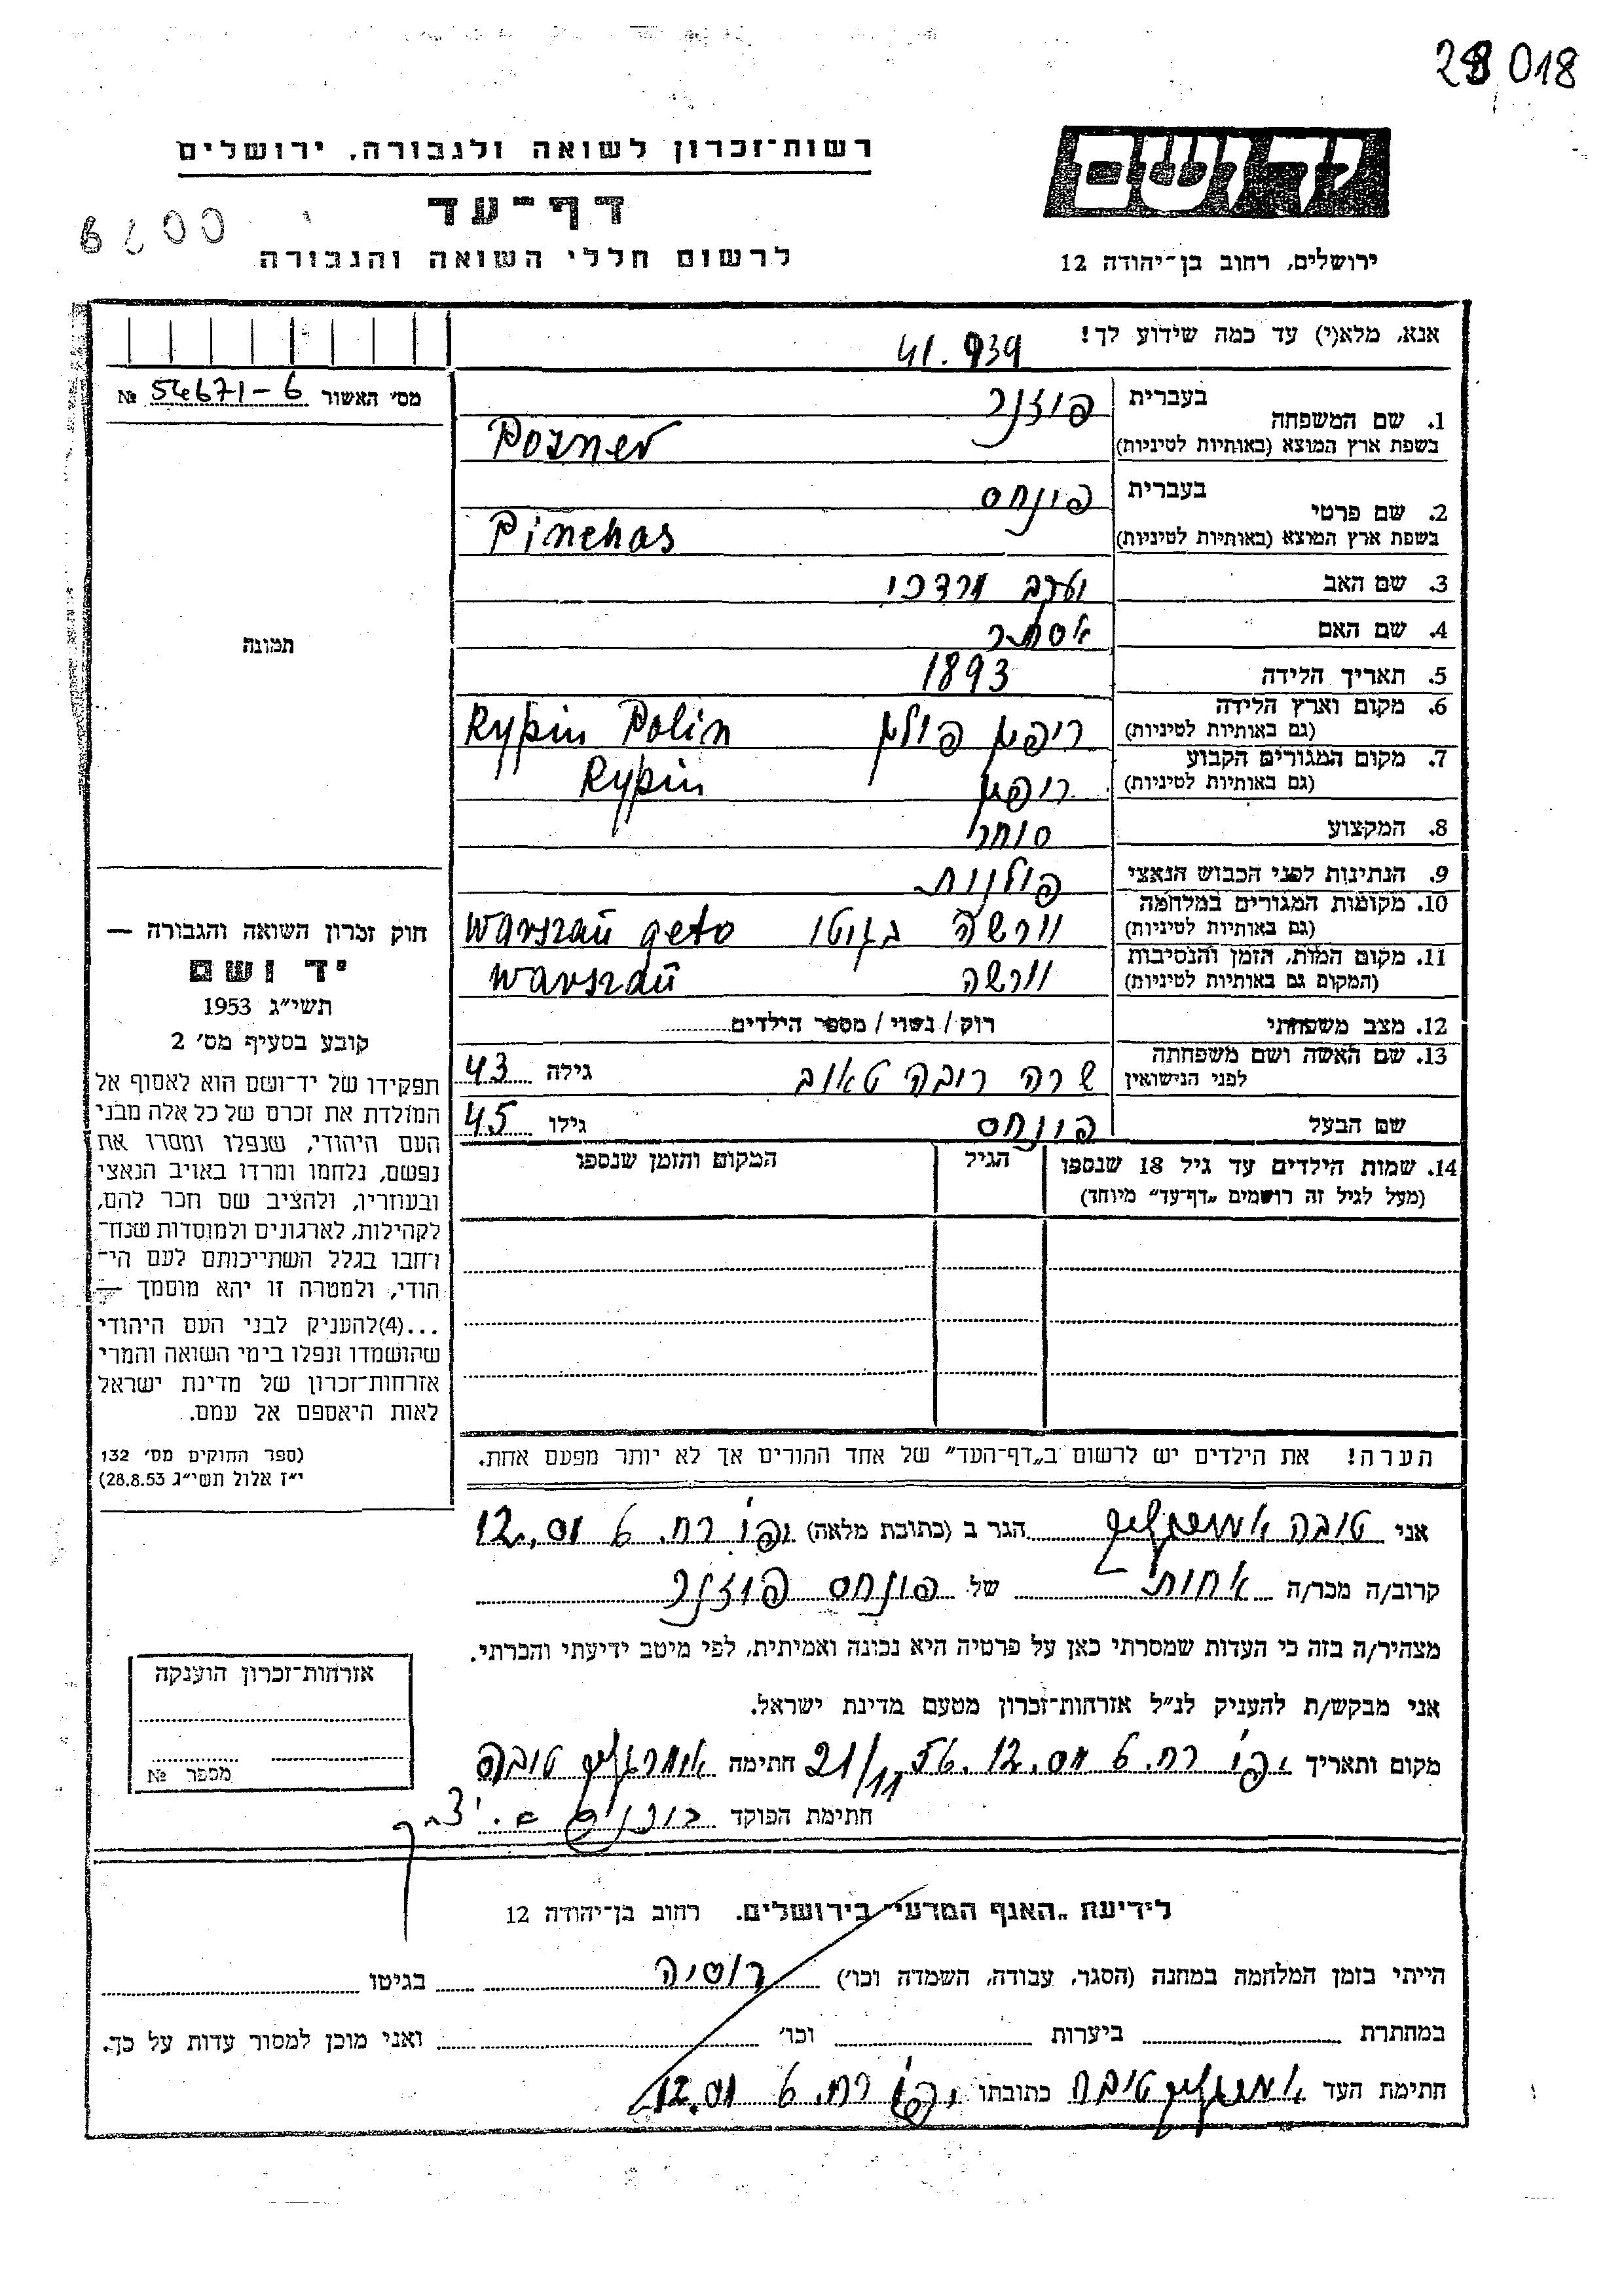 28018
רשות־זכרון לשואה ולגבורה, ירושלים
יד ושם
דף־עד
לרשום חללי השואה והגבורה
ירושלים, רחוב בן־יהודה 12
אנא, מלא(י) עד כמה שידוע לך!
41.939
מס' האשור 54671-6 №
1. שם המשפחה
בעברית פוזנר
בשפת ארץ המוצא (באותיות לטיניות) Pozner
2. שם פרטי
בעברית פונחס
בשפת ארץ המוצא (באותיות לטיניות) Pinchas
3. שם האב יעקב מרדכי
4. שם האם אסתר
5. תאריך הלידה 1893
6. מקום וארץ הלידה ריפין פולין Rypin Polin
(גם באותיות לטיניות)
7. מקום המגורים הקבוע ריפין Rypin
(גם באותיות לטיניות)
8. המקצוע סוחר
9. הנתינות לפני הכבוש הנאצי פולנית
10. מקומות המגורים במלחמה וורשה בגיטו Warszaŭ geto
(גם באותיות לטיניות)
11. מקום המות, הזמן והנסיבות וורשה Warszaŭ
(המקום גם באותיות לטיניות)
12. מצב משפחתי רוק / נשוי / מספר הילדים
13. שם האשה ושם משפחתה שרה ריבה טאוב גילה 43
לפני הנישואין
שם הבעל פונחס גילו 45
14. שמות הילדים עד גיל 18 שנספו הגיל המקום והזמן שנספו
(מעל לגיל זה רושמים „דף־עד" מיוחד)
הערה! את הילדים יש לרשום ב„דף־העד" של אחד ההורים אך לא יותר מפעם אחת.
תמונה
חוק זכרון השואה והגבורה —
יד ושם
תשי"ג 1953
קובע בסעיף מס' 2
תפקידו של יד־ושם הוא לאסוף אל
המולדת את זכרם של כל אלה מבני
העם היהודי, שנפלו ומסרו את
נפשם, נלחמו ומרדו באויב הנאצי
ובעוזריו, ולהציב שם וזכר להם,
לקהילות, לארגונים ולמוסדות שנח־
רבו בגלל השתייכותם לעם הי־
הודי, ולמטרה זו יהא מוסמך —
...(4) להעניק לבני העם היהודי
שהושמדו ונפלו בימי השואה והמרי
אזרחות־זכרון של מדינת ישראל
לאות היאספם אל עמם.
(ספר החוקים מס' 132
י"ז אלול תשי"ג 28.8.53)
אני טובה הגר ב (כתובת מלאה) יפו רח. 6 מס. 12
קרוב/ה מכר/ה אחותי של פונחס פוזנר
מצהיר/ה בזה כי העדות שמסרתי כאן על פרטיה היא נכונה ואמיתית, לפי מיטב ידיעתי והכרתי.
אני מבקש/ת להעניק לנ"ל אזרחות־זכרון מטעם מדינת ישראל.
מקום ותאריך יפו רח. 6 מס. 12. 56. 21/11 חתימה טובה
חתימת הפוקד
אזרחות־זכרון הוענקה
מספר №
לידיעת „האגף המדעי" בירושלים. רחוב בן־יהודה 12
הייתי בזמן המלחמה במחנה (הסגר, עבודה, השמדה וכו') רוסיה בגיטו
במחתרת ביערות וכו' ואני מוכן למסור עדות על כך.
חתימת העד טובה כתובתו יפו רח. 6 מס. 12